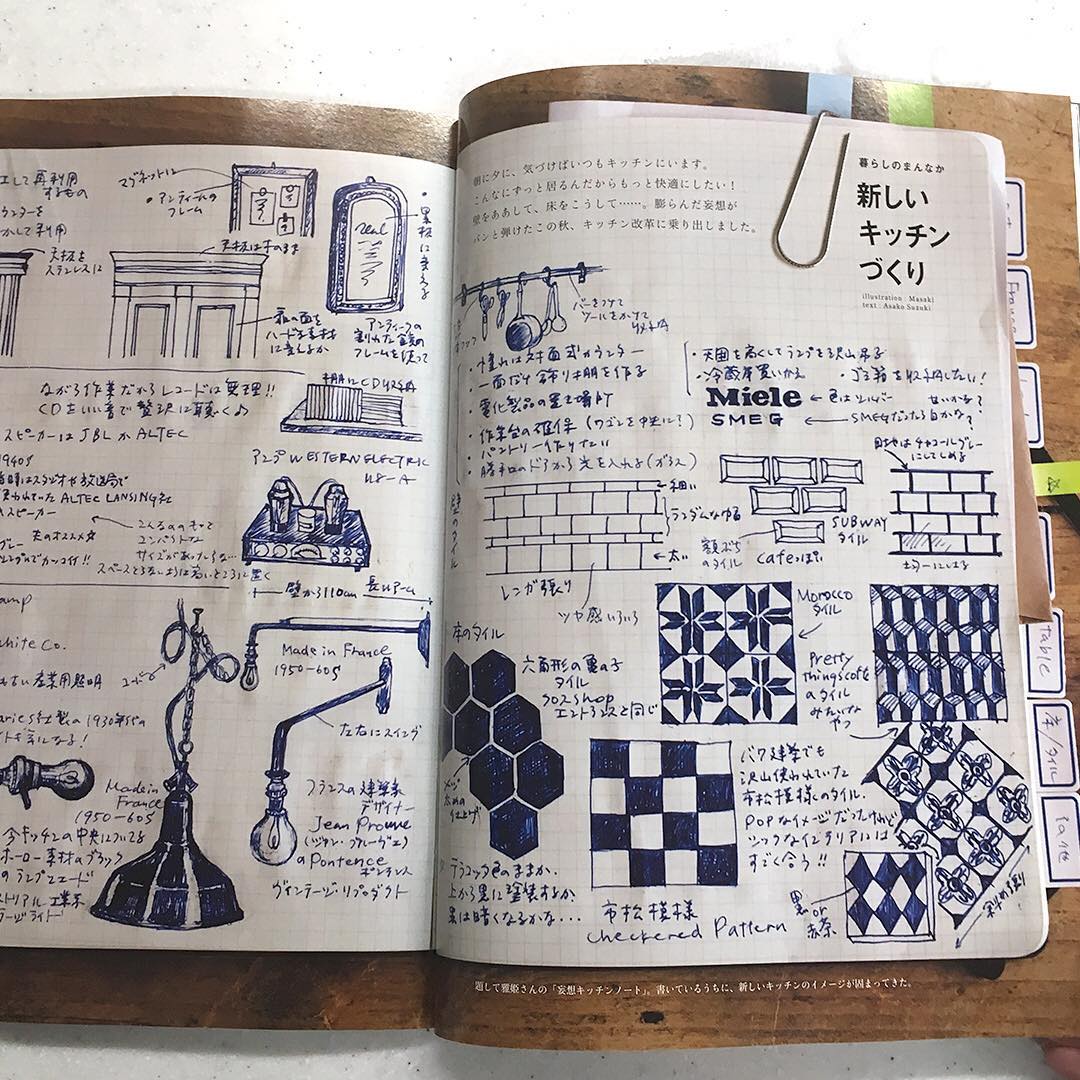 工して再利用
するもの
かして利用
天板を
ステンレスに
マグネットに
・アンティークの
フレーム
天板は木のまま
扉の面を
ハードな素材
に変えるか
real
・黒板に変える
アンティークの
割れた鏡の
フレームを使って
ながら作業だからレコードは無理!!
CDをいい音で贅沢に聴く♪
棚にCD収納
スピーカーはJBLかALTEC
1940s
当時はスタジオや放送局で
使われていたALTEC LANSING社
スピーカー
夫のオススメ
アンプ WESTERN ELECTRIC
こんなのもって
コンパクトな
サイズがあったら
amp
White Co.
コード
壁から110cm
長いアーム
Made in France
1950-60s
左右にスイング
Made in
France
1950-60s
今キッチンの中央についてる
ホーロー素材のブラック
フランスの建築家
デザイナー
Jean Prouve
(ジャン・プルーヴェ)
のPontence
ポンテンス
ヴィンテージ・リプロダクト
朝に夕に、気づけばいつもキッチンにいます。
こんなにずっと居るんだからもっと快適にしたい!
壁をああして、床をこうして……。膨らんだ妄想が
パンと弾けたこの秋、キッチン改革に乗り出しました。
暮らしのまんなか
新しい
キッチン
づくり
illustration : Masaki
text : Asako Suzuki
バーをつけて
ツールをかけて
収納
・憧れは対面式カウンター
・一面だけ飾り棚を作る
・電化製品の置き場所
・作業台の確保(ワゴンを中央に?)
・パントリー作りたい
・勝手口のドアから光を入れる(ガラス)
・天困を高くしてランプを沢山吊す
・冷蔵庫買いかえ
・ゴミ箱を収納したい!
Miele
←色はシルバー
SMEG
SMEGだったら白かな?
目地はチャコールグレー
にしてしめる
壁のタイル
細い
ランダムな幅
太い
レンガ張り
ツヤ感いろいろ
額ぶち
のタイル
SUBWAY
タイル
cafeっぽい
均一にする
床のタイル
六角形の亀の子
タイル
エントランスと同じ
Morocco
タイル
Pretty
things cafe
のタイル
みたいな
やつ
テラコッタ色のままか、
上から黒に塗装するか
黒は暗くなるかな…
市松模様
checkered Pattern
パリ建築でも
沢山使われていた
市松模様のタイル。
POPなイメージだったけれど
シックなインテリアには
すごく合う!!
黒or
赤茶
France
table
床/タイル
その他
題して雅姫さんの「妄想キッチンノート」。書いているうちに、新しいキッチンのイメージが固まってきた。